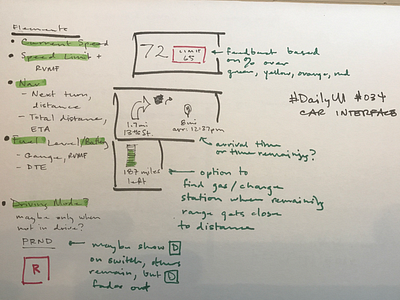 Elements
• Current Speed
• Speed Limit +
RVMF
• Nav
- Next turn,
distance
- Total distance,
ETA
• Fuel Level/Batty
- Gauge, RVMF
- DTE
• Driving Mode
maybe only when
not in drive?
PRND
R
72
LIMIT
65
Feedback based
on % over
green, yellow, orange, red
1.7mi
13th St.
8mi
arr: 12:27pm
arrival time
or time remaining?
187 miles
left
option to
find gas/charge
station when remaining
range gets close
to distance
maybe show D
on switch, others
remain, but D
fades out
#DailyUI #034
CAR INTERFACE